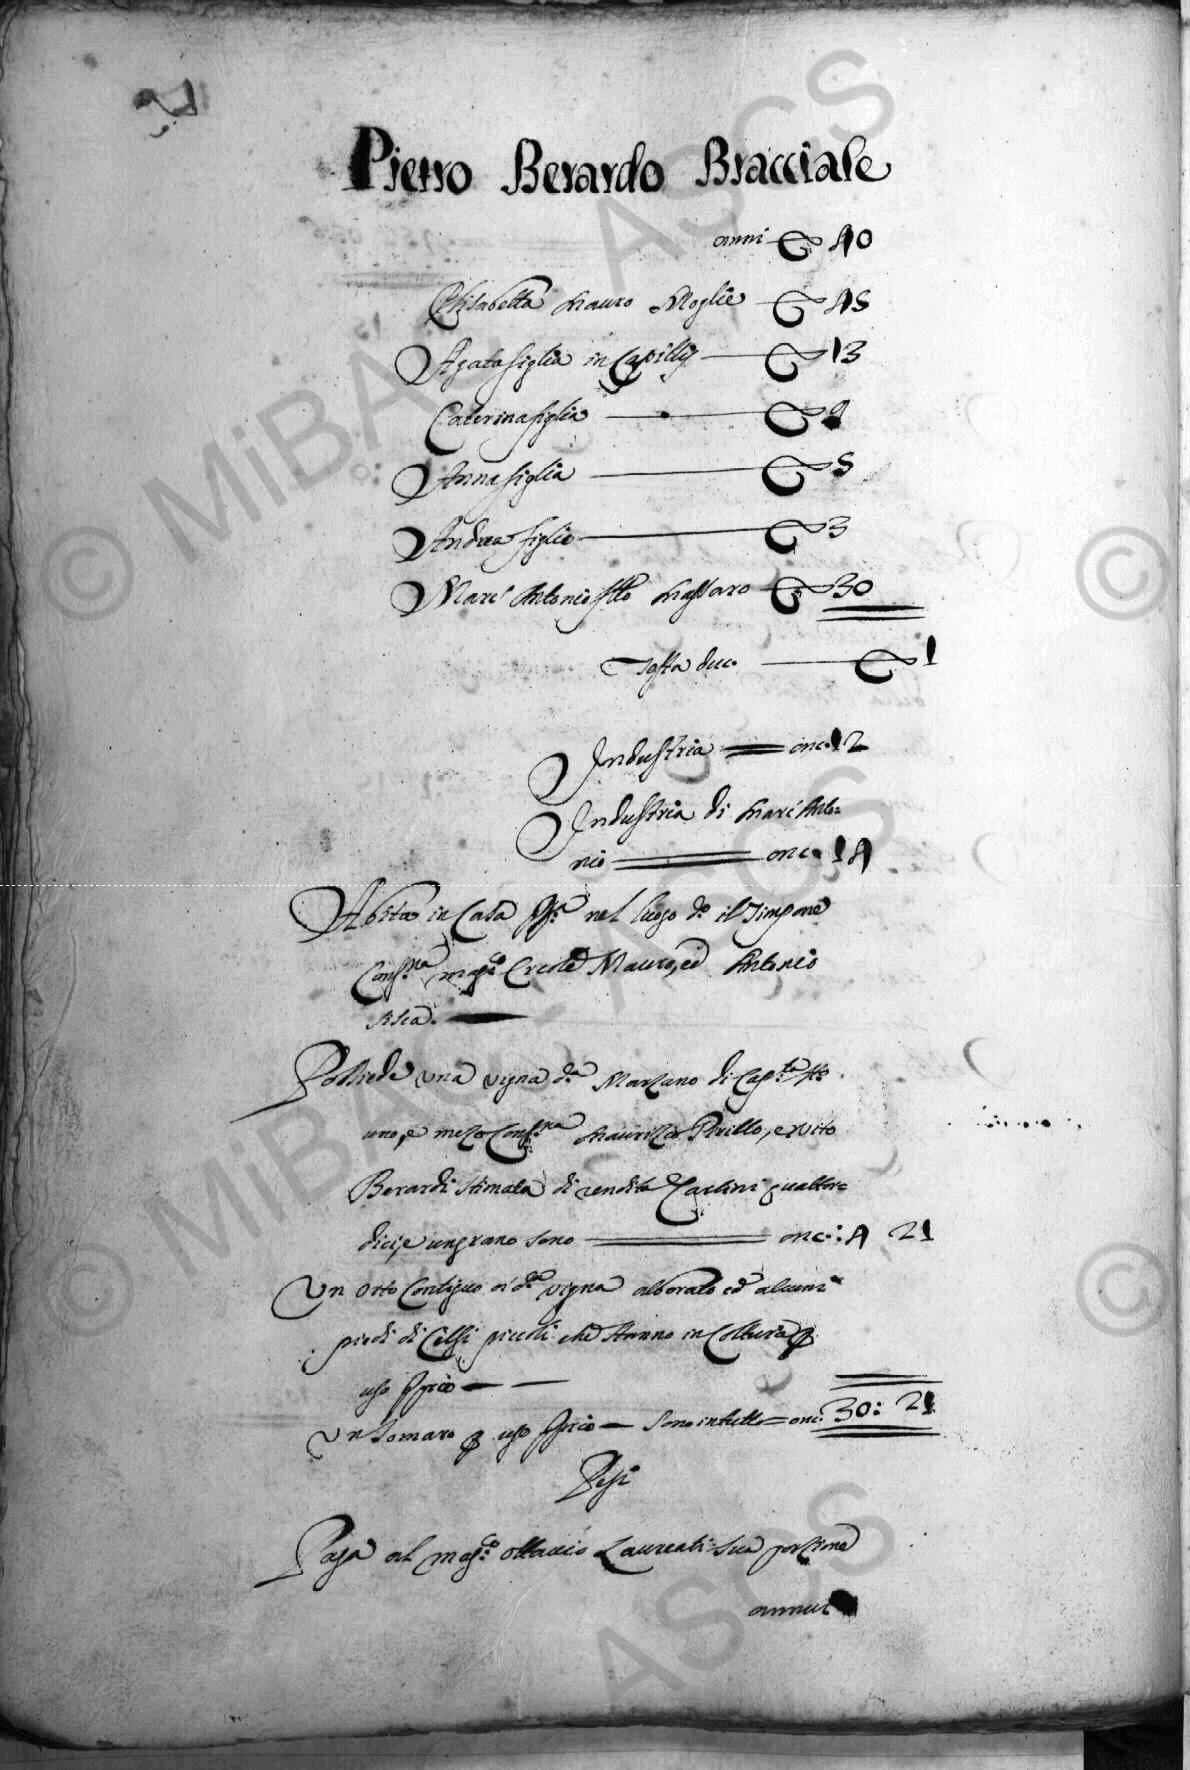 Pietro Berardo Bracciale
anni 40
Elisabetta Mauro Moglie 45
Agata figlia in Capillis 13
Caterina figlia
Anna figlia 5
Andrea figlio 3
Marc' Antonio fr̃llo Massaro 30
Testa duc. 1
Industria onc. 12
Industria di Marc' Anto=
nio onc. 14
Abita in Casa ppa nel luogo do il Timpone
Confna magco Ercole Mauro, ed Antonio
Possiede una vigna da Marzano di Capta tta
uno, e mezo Confna Maurizio Perillo, e Vito
Berardi stimata di rendita Carlini quattor=
dici, e un grano sono onc: 4 21
Un orto Contiguo a' da vigna alborato ed alcuni
piedi di Celsi piccoli che stanno in Coltura p
uso pprio
Un Somaro p uso pprio Sono in tutto onc. 30: 21
Pesi
Paga al magco Ottavio Laureati sua porzione
annui
© MiBAC - ASCS
© MiBAC - ASCS
ASCS
©
©